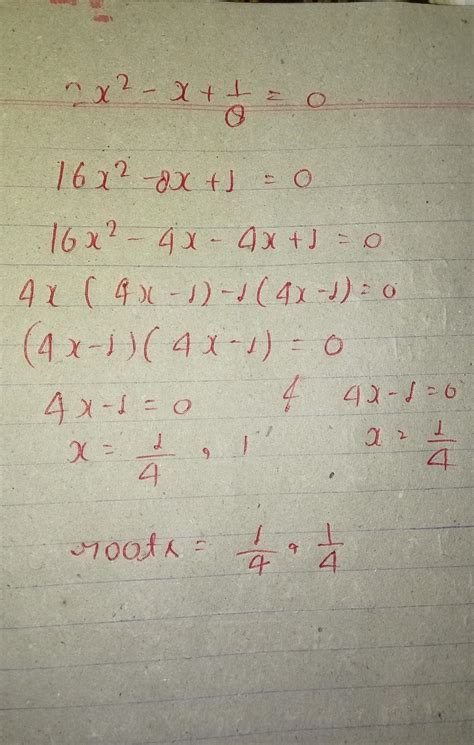 2x² - x + 1/8 = 0
16x² - 8x + 1 = 0
16x² - 4x - 4x + 1 = 0
4x ( 4x - 1) - 1 ( 4x - 1) = 0
(4x - 1) ( 4x - 1) = 0
4x - 1 = 0 & 4x - 1 = 0
x = 1/4 , 1 x = 1/4
roots = 1/4 , 1/4